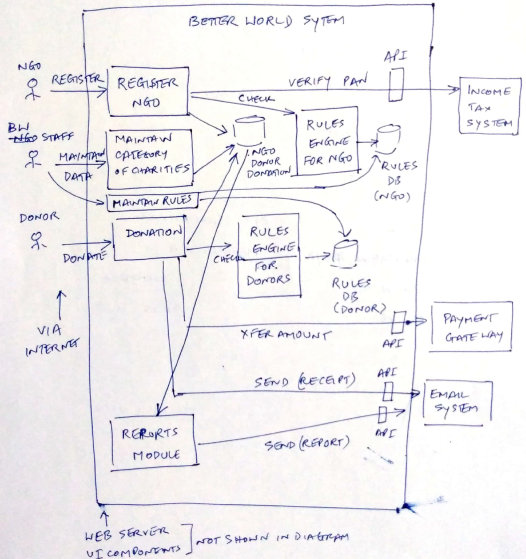 BETTER WORLD SYTEM
API
NGO
REGISTER
REGISTER
NGO
VERIFY PAN
CHECK
INCOME
TAX
SYSTEM
BW
NGO STAFF
MAINTAIN
DATA
MAINTAIN
CATEGORY
OF CHARITIES
NGO
DONOR
DONATION
RULES
ENGINE
FOR NGO
RULES
DB
(NGO)
MAINTAIN RULES
DONOR
DONATE
DONATION
CHECK
RULES
ENGINE
FOR
DONORS
RULES
DB
(DONOR)
VIA
INTERNET
XFER AMOUNT
API
PAYMENT
GATEWAY
SEND (RECEIPT)
API
EMAIL
SYSTEM
API
REPORTS
MODULE
SEND (REPORT)
WEB SERVER
UI COMPONENTS
NOT SHOWN IN DIAGRAM